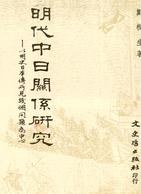 鄭樑生著
明代中日關係研究
—以明史日本傳所見幾個問題為中心
文史哲出版社印行